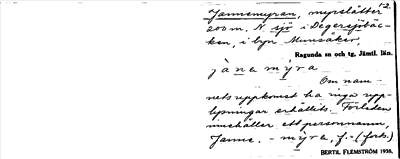 12.
Jannemyran, myrslåtter
200 m. N sjö i Degersjöbäc-
ken, i byn Munsåker,
Ragunda sn och tg, Jämtl. län.
jàna mýra
Om nam-
nets uppkomst ha inga upp-
lysningar erhållits. Förleden
innehåller ett personnamn,
Janne. - mýra, f. - (forts.)
BERTIL FLEMSTRÖM 1938.